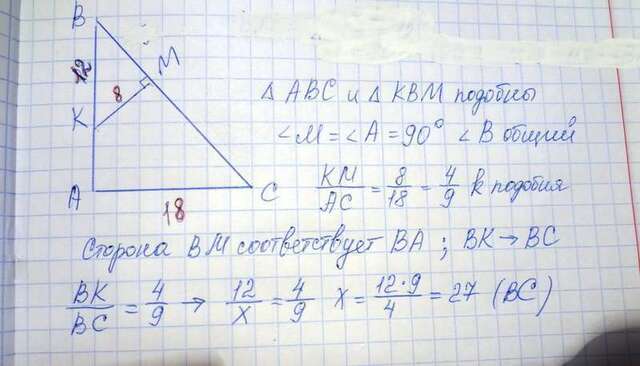 B
12
M
8
K
A
C
18
△ ABC и △ KBM подобны
∠M = ∠A = 90° ∠B общий
KM/AC = 8/18 = 4/9 k подобия
Сторона BM соответствует BA ; BK → BC
BK/BC = 4/9 → 12/X = 4/9 X = 12·9/4 = 27 (BC)